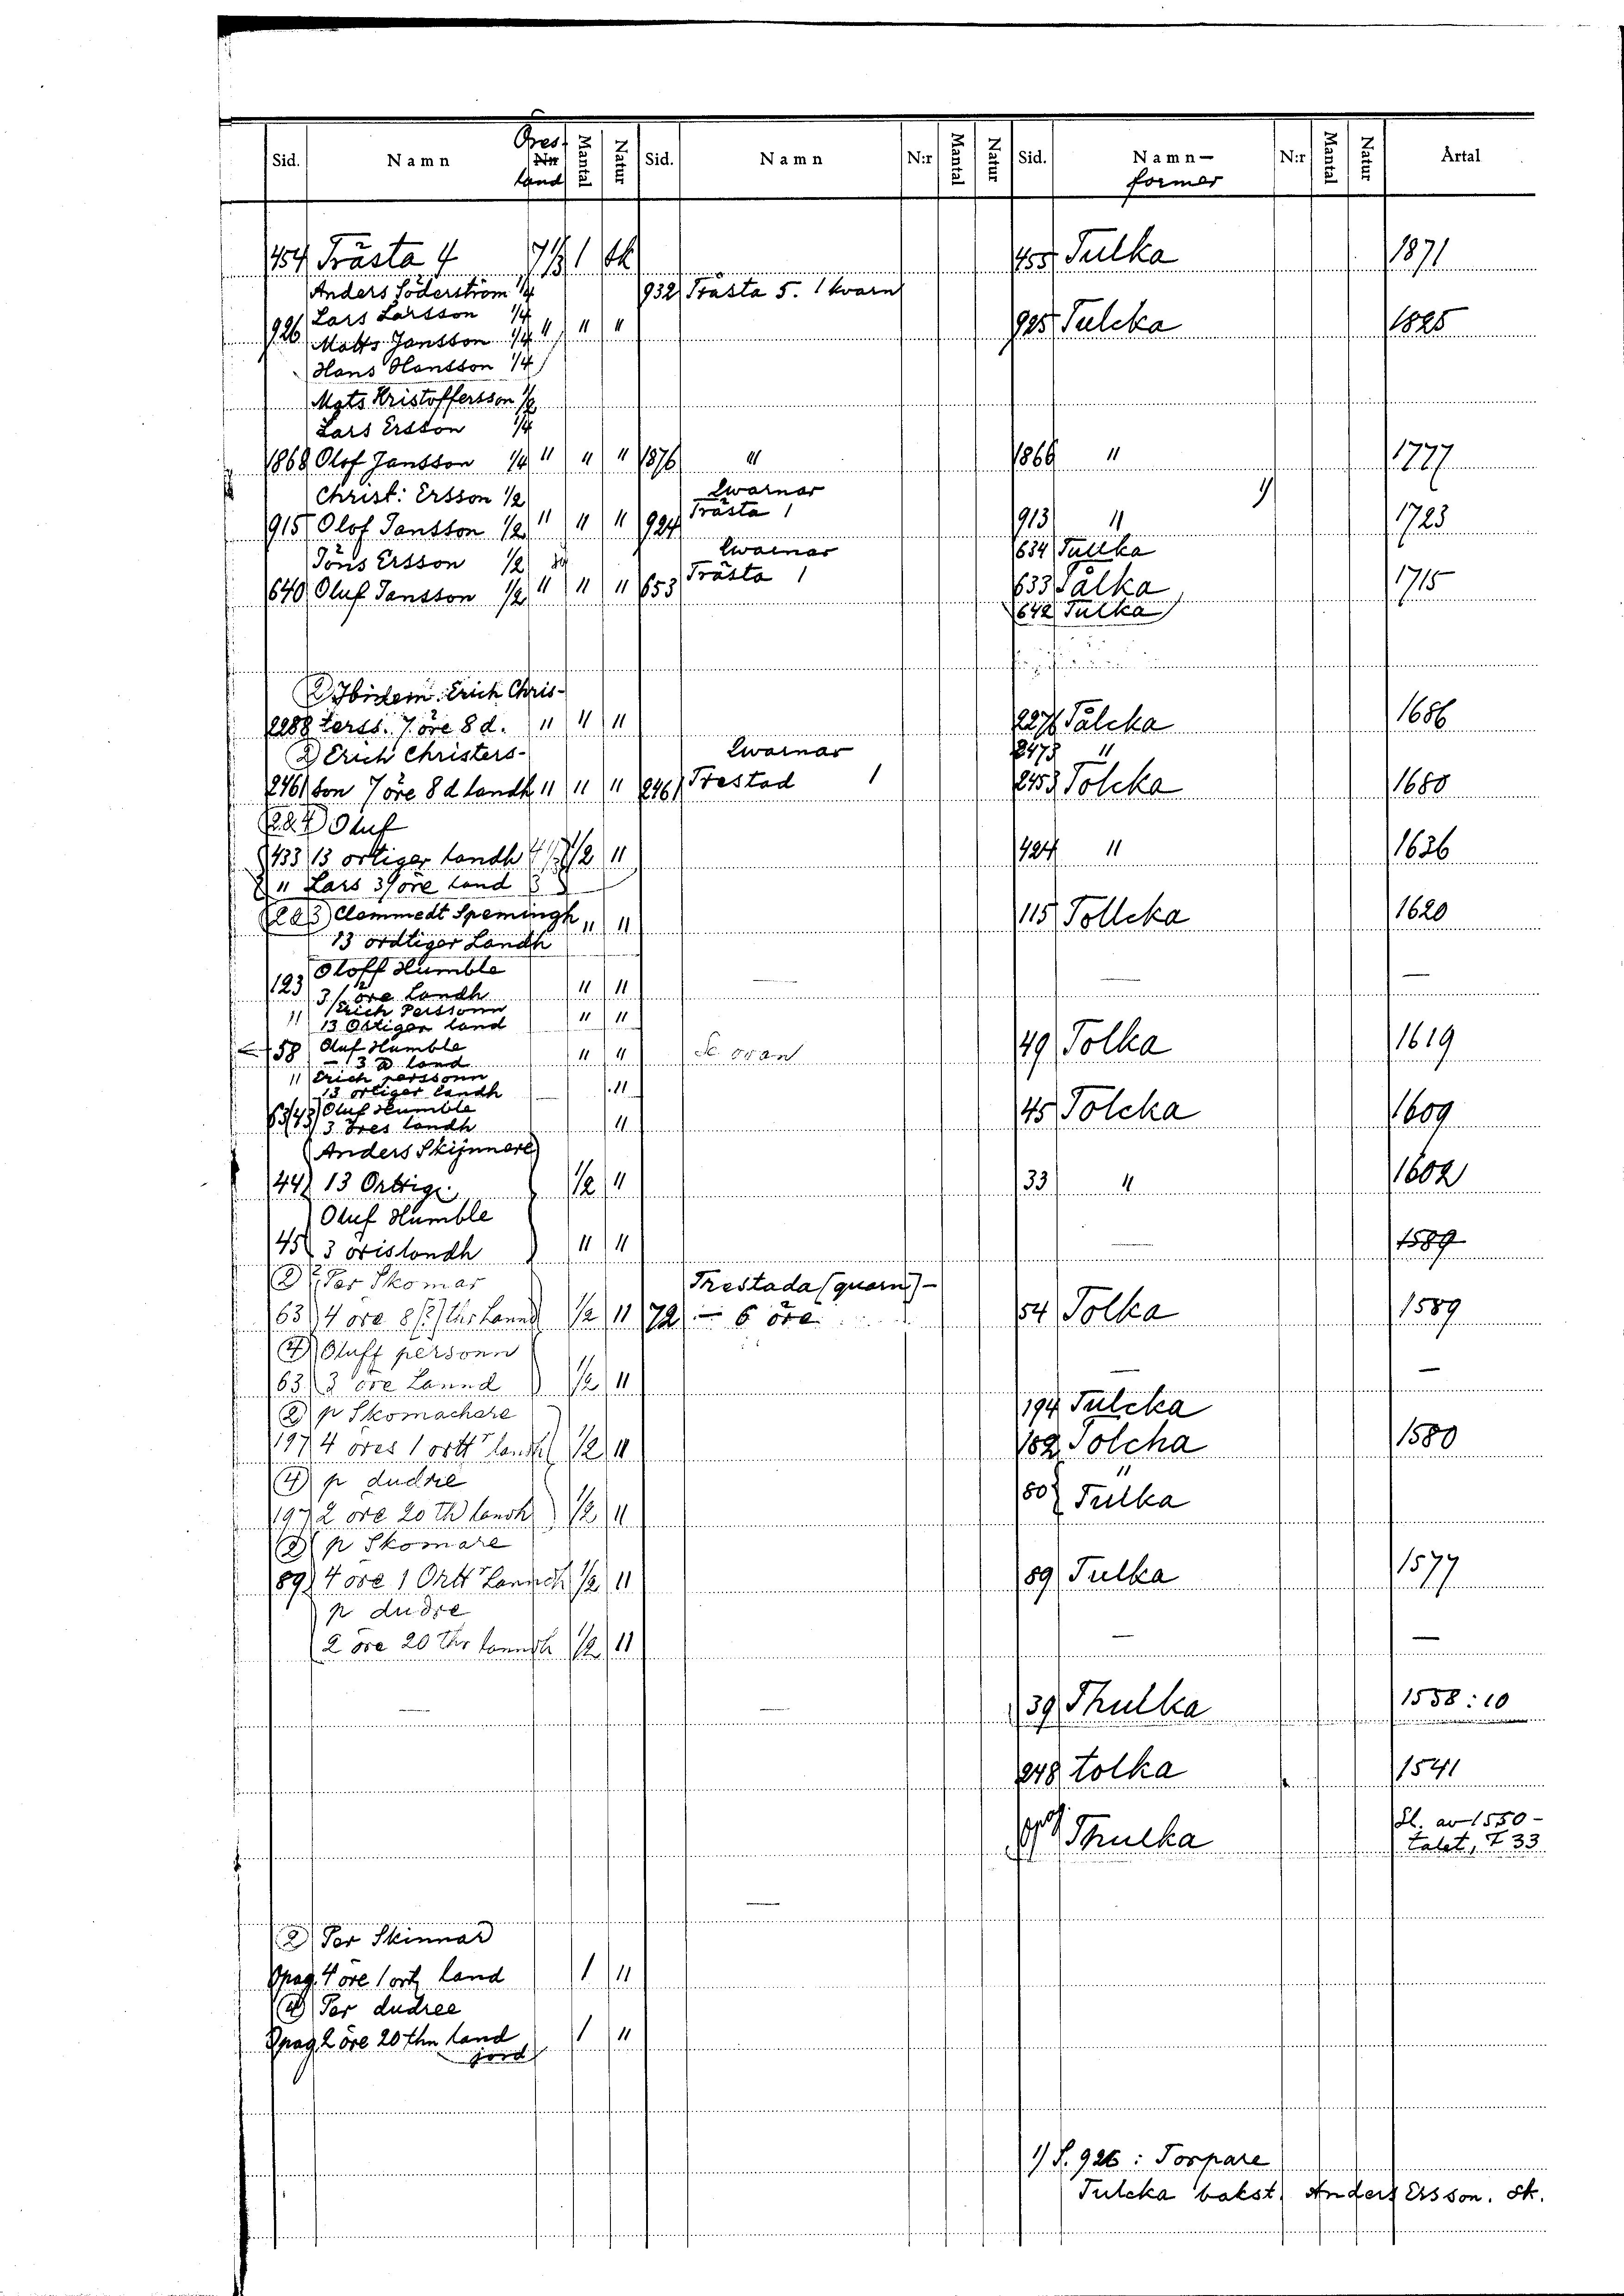 Sid. Namn Öres land Mantal Natur Sid. Namn N:r Mantal Natur Sid. Namn-former N:r Mantal Natur Årtal
454 Trästa 4 1 Sk 455 Tulka 1871
Anders Söderström 1/4 932 Trästa 5. 1 kvarn
Lars Larsson 1/4
926 Matts Jansson 1/4 " " " 925 Tulcka 1825
Hans Hansson 1/4
Mats Kristoffersson 1/2
Lars Ersson 1/4
1868 Olof Jansson 1/4 " " " 1876 " 1866 " 1777
Christ: Ersson 1/2 Qwarnar 1)
915 Olof Jansson 1/2 " " " 924 Trästa 1 913 " 1723
Jöns Ersson 1/2 Qwarnar 634 Tullka
640 Oluf Jansson 1/2 " " " 653 Trästa 1 633 Tålka 1715
642 Tulka
2) Ibidem. Erich Chris-
2288 terss. 7 öre 8 d. " " " 2276 Tålcka 1686
2) Erich Christers- Qwarnar 2473 "
2461 son 7 öre 8 d landh " " " 2461 Trestad 1 2453 Tolcka 1680
2 & 4) Oluf
433 13 örtiger landh 1/2 " 424 " 1636
" Lars 3 öre land
2 & 3) Clemmedt Spemingh " " 115 Tollcka 1620
13 ördtiger Landh
Oloff Humble
123 3 öre Landh " " — — —
" Erich Persson
13 Örtiger land " "
58 Oluf Humble " " Se ovan 49 Tolka 1619
— 3 Ø land
" Erich persson
13 örtiger landh "
Oluf Humble 45 Tolcka 1609
3 Öres landh "
Anders Skijnnere
44 13 Örttige 1/2 " 33 " 1602
Oluf Humble
45 3 örislandh " " — 1589
2) Per Skomar Trestada (quarn) -
63 4 öre 8 (?) thr Lannd 1/2 " 72 — 6 öre 54 Tolka 1589
4) Oluff personn
63 3 öre Lannd 1/2 " — —
2) p Skomachare 194 Tulcka
197 4 öres 1 ortt landh 1/2 " 182 Tolcha 1580
4) p dudre "
197 2 öre 20 th landh 1/2 " 80 Tulka
2) p Skomare
89 4 öre 1 Ortt Lanndh 1/2 " 89 Tulka 1577
p dudre
2 öre 20 thr lanndh 1/2 " — —
— — 39 Thulka 1558:10
248 tolka 1541
opag. Thulka Sl. av 1550-
talet, F 33
—
2) Per Skinnar
Opag. 4 öre 1 ort land 1 "
4) Per dudree
Opag 2 öre 20 thn land 1 "
jord
1) S. 926 : Torpare
Tulcka bakst. Anders Ersson. Sk.